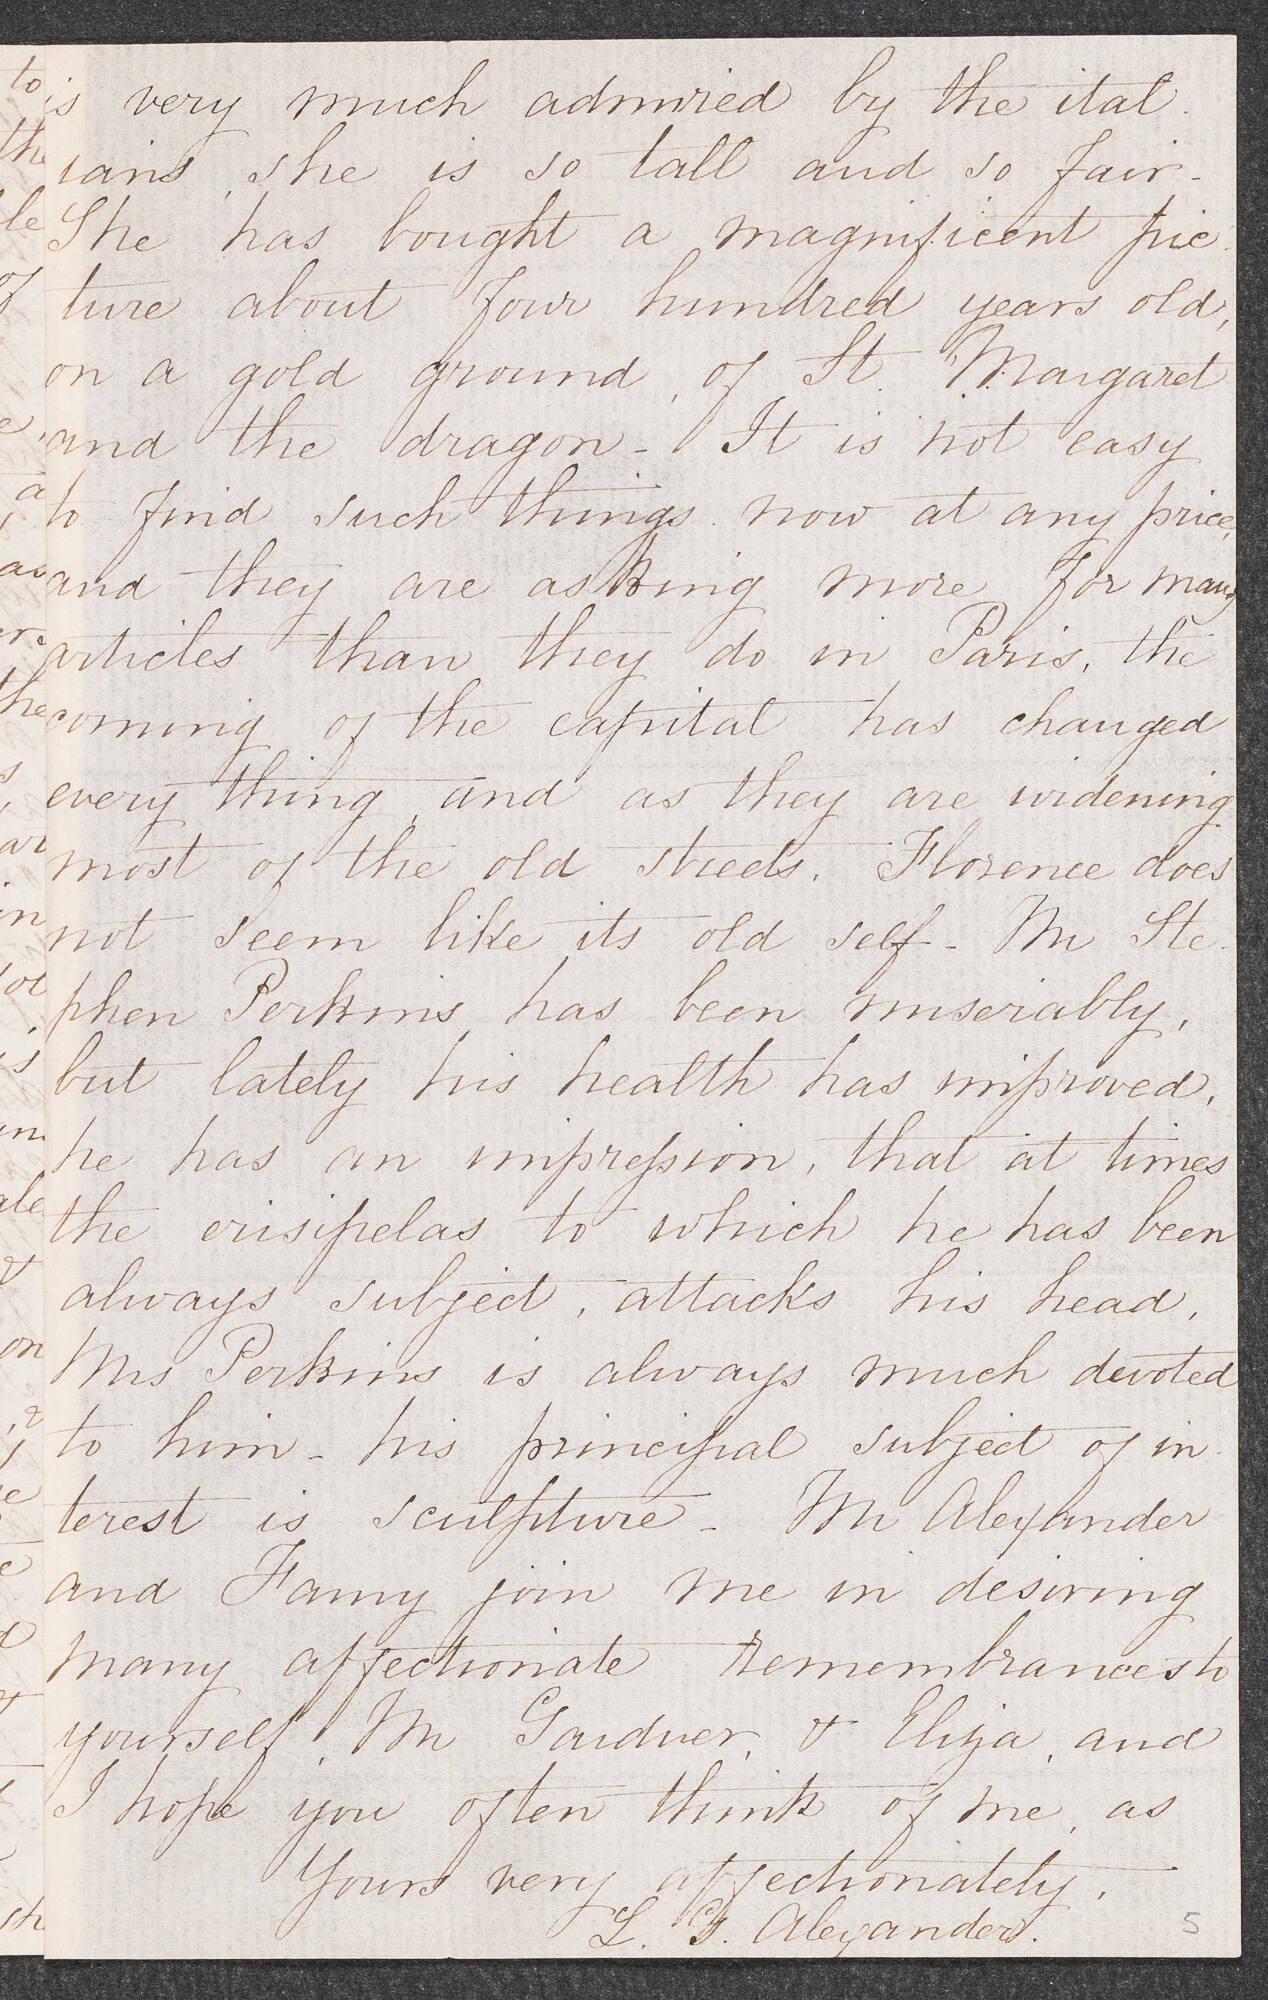 is very much admired by the ital.
ians, she is so tall and so fair-
She has bought a magnificent pic-
ture about four hundred years old,
on a gold ground, of St. Margaret
and the dragon - It is not easy
to find such things now at any price,
and they are asking more for many
articles than they do in Paris, the
coming of the capital has changed
every thing, and as they are widening
most of the old streets, Florence does
not seem like its old self - Mr Ste-
phen Perkins has been miserably,
but lately his health has improved,
he has an impression, that at times
the erisipelas to which he has been
always subject, attacks his head,
Mrs Perkins is always much devoted
to him - his principal subject of in-
terest is sculpture - Mr Alexander
and Fanny join me in desiring
many affectionate remembrances to
yourself, Mr Gardner, & Eliza, and
I hope you often think of me, as
Yours very affectionately,
L. G. Alexander.
5